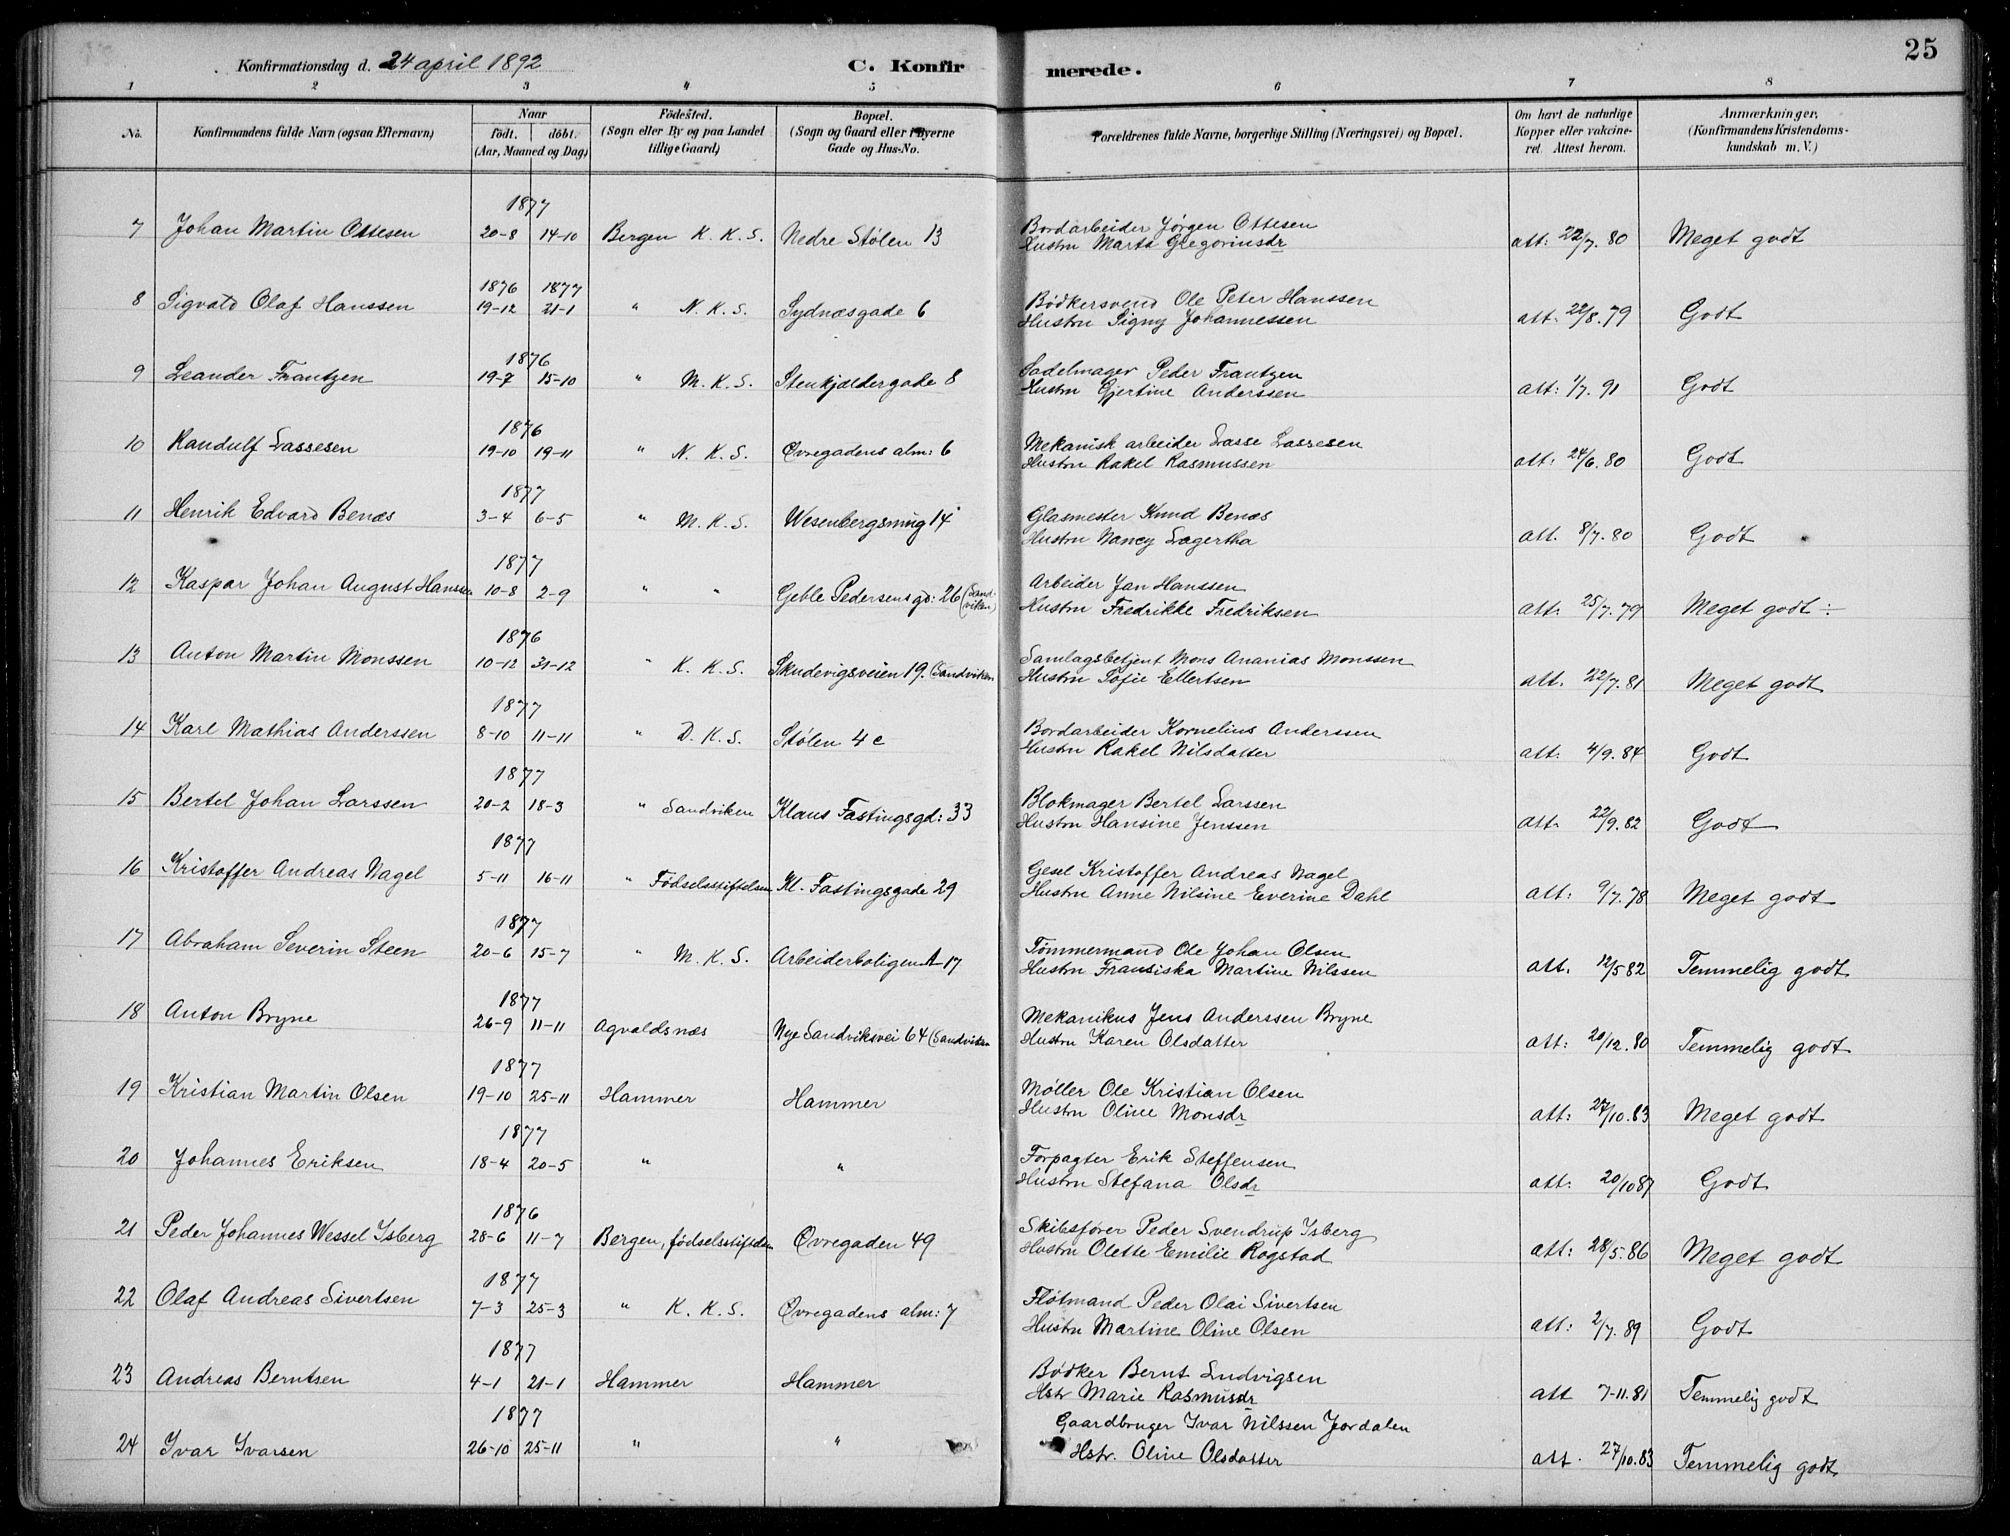 25
Konfirmationsdag d. 24 april 1892 C. Konfirmerede.
1 2 3 4 5 6 7 8
No. Konfirmandens fulde Navn (ogsaa Efternavn) Naar født. døbt. (Aar, Maaned og Dag) Fødested. (Sogn eller By og paa Landet tillige Gaard) Bopæl. (Sogn og Gaard eller i Byerne Gade og Hus-No. Forældrenes fulde Navne, borgerlige Stilling (Næringsvei) og Bopæl. Om havt de naturlige Kopper eller vakcineret. Attest herom. Anmærkninger. (Konfirmandens Kristendomskundskab m. V.)
1877
7 Johan Martin Ottesen 20-8 14-10 Bergen K. K. S. Nedre Stølen 13 Bordarbeider Jørgen Ottesen
Hustru Marta Gregoriusdr att: 22/7. 80 Meget godt
1876 1877
8 Sigvald Olaf Hanssen 19-12 21-1 " N. K. S. Sydnæsgade 6 Bødkersvend Ole Peter Hanssen
Hustru Signy Johannessen att: 22/8. 79 Godt
1876
9 Leander Frantzen 19-7 15-10 " M. K. S. Stenkjældergade 8 Sadelmager Peder Frantzen
Hustru Gjertine Anderssen att: 1/7. 91 Godt
1876
10 Randulf Lassesen 19-10 19-11 " N. K. S. Øvregadens alm: 6 Mekanisk arbeider Lasse Lassesen
Hustru Rakel Rasmussen att: 24/6. 80 Godt
1877
11 Henrik Edvard Benæs 3-4 6-5 " M. K. S. Wesenbergsmug 14 Glasmester Knud Benæs
Hustru Nancy Lagertha att. 8/7. 80 Godt
1877
12 Kaspar Johan August Hanssen 10-8 2-9 " " Geble Pedersens gd: 26 (Sandviken) Arbeider Jan Hanssen
Hustru Fredrikke Fredriksen att. 25/7. 79 Meget godt ÷
1876
13 Anton Martin Monssen 10-12 31-12 " K. K. S. Skudevigsveien 19. (Sandviken Samlagsbetjent Mons Ananias Monssen
Hustru Sofie Ellertsen att. 22/7. 81 Meget godt
1877
14 Karl Mathias Anderssen 8-10 11-11 " D. K. S. Stølen 4 c Bordarbeider Kornelius Anderssen
Hustru Rakel Nilsdatter att. 4/9. 84 Godt
1877
15 Bertel Johan Larssen 20-2 18-3 " Sandviken Klaus Fastingsgd: 33 Blokmager Bertel Larssen
Hustru Hansine Jenssen att. 22/9. 82 Godt
1877
16 Kristoffer Andreas Nagel 5-11 16-11 " Fødselsstiftelsen Kl. Fastingsgade 29 Gesel Kristoffer Andreas Nagel
Hustru Anne Nilsine Everine Dahl att: 9/7. 78 Meget godt
1877
17 Abraham Severin Steen 20-6 15-7 " M. K. S. Arbeiderboligen A 17 Tømmermand Ole Johan Olsen
Hustru Fransiska Martine Nilssen att. 12/5 82 Temmelig godt
1877
18 Anton Bryne 26-9 11-11 Agvaldsnæs Nye Sandviksvei 64 (Sandviken Mekanikus Jens Anderssen Bryne
Hustru Karen Olsdatter att: 20/12. 80 Temmelig godt
1877
19 Kristian Martin Olsen 19-10 25-11 Hammer Hammer Møller Ole Kristian Olsen
Hustru Oline Monsdr att: 27/10. 83 Meget godt
1877
20 Johannes Eriksen 18-4 20-5 " " Forpagter Erik Steffensen
Hustru Stefana Olsdr att. 20/10 87 Godt
1876
21 Peder Johannes Wessel Isberg 28-6 11-7 Bergen, fødselsstiftelsen Øvregaden 49 Skibsfører Peder Svendrup Isberg
Hustru Olette Emilie Rogstad att: 28/5. 86 Meget godt
1877
22 Olaf Andreas Sivertsen 7-3 25-3 " K. K. S. Øvregadens alm: 7 Fløtmand Peder Olai Sivertsen
Hustru Martine Oline Olsen att: 2/7. 89 Godt
1877
23 Andreas Berntsen 4-1 21-1 Hammer Hammer Bødker Bernt Ludvigsen
Hstr Marie Rasmusdr att 7-11. 81 Temmelig godt
1877
24 Ivar Ivarsen 26-10 25-11 " " Gaardbruger Ivar Nilssen Jordalen
Hstr. Oline Olsdatter att. 27/10. 83 Temmelig godt